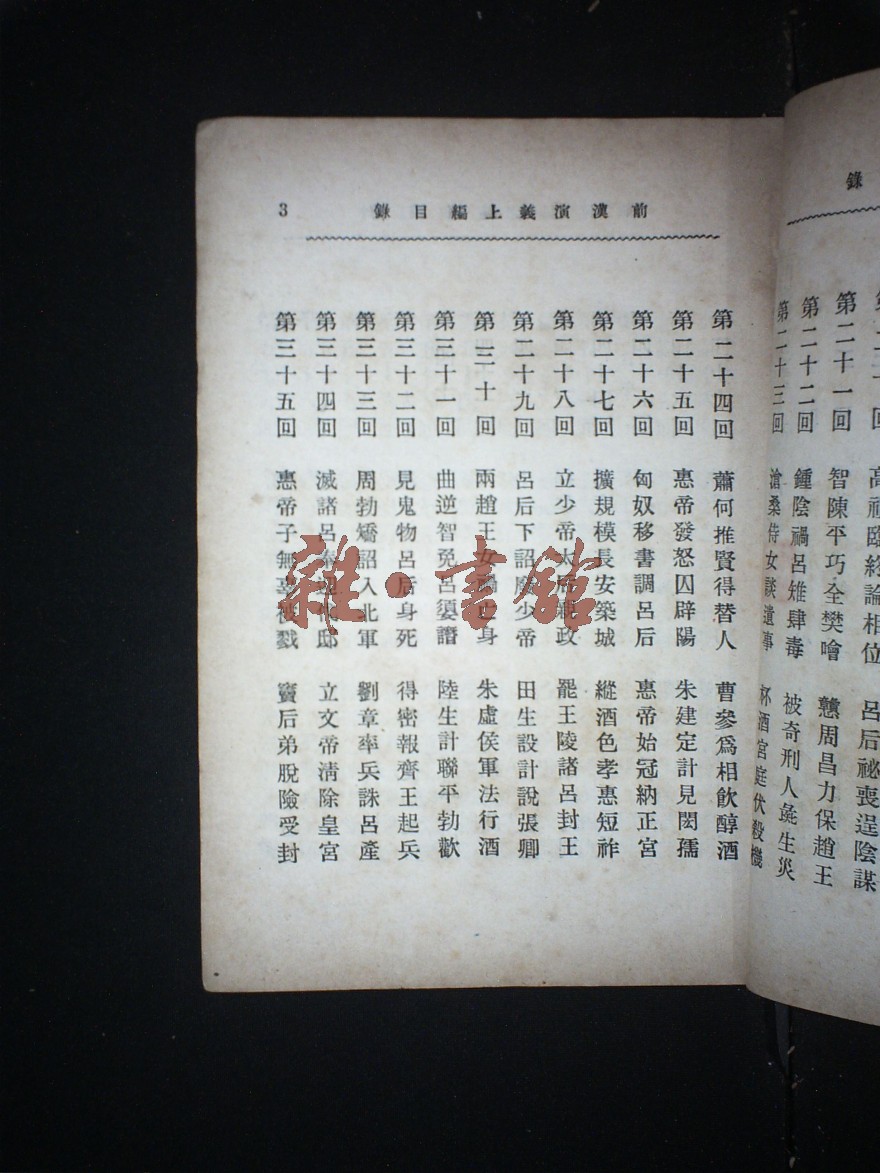 錄
高祖臨終論相位 呂后祕喪逞陰謀
第二十一回 智陳平巧全樊噲 戇周昌力保趙王
第二十二回 鍾陰禍呂雉肆毒 被奇刑人彘生災
第二十三回 滄桑侍女談遺事 杯酒宮庭伏殺機
前漢演義上編目錄 3
第二十四回 蕭何推賢得替人 曹參爲相飲醇酒
第二十五回 惠帝發怒囚辟陽 朱建定計見閎孺
第二十六回 匈奴移書調呂后 惠帝始冠納正宮
第二十七回 擴規模長安築城 縱酒色孝惠短祚
第二十八回 立少帝太后政 罷王陵諸呂封王
第二十九回 呂后下詔廢少帝 田生設計說張卿
第三十回 兩趙王女禍亡身 朱虛侯軍法行酒
第三十一回 曲逆智免呂嬃譖 陸生計聯平勃歡
第三十二回 見鬼物呂后身死 得密報齊王起兵
第三十三回 周勃矯詔入北軍 劉章率兵誅呂產
第三十四回 滅諸呂奉迎代邸 立文帝淸除皇宮
第三十五回 惠帝子無辜被戮 竇后弟脫險受封
雜·書館